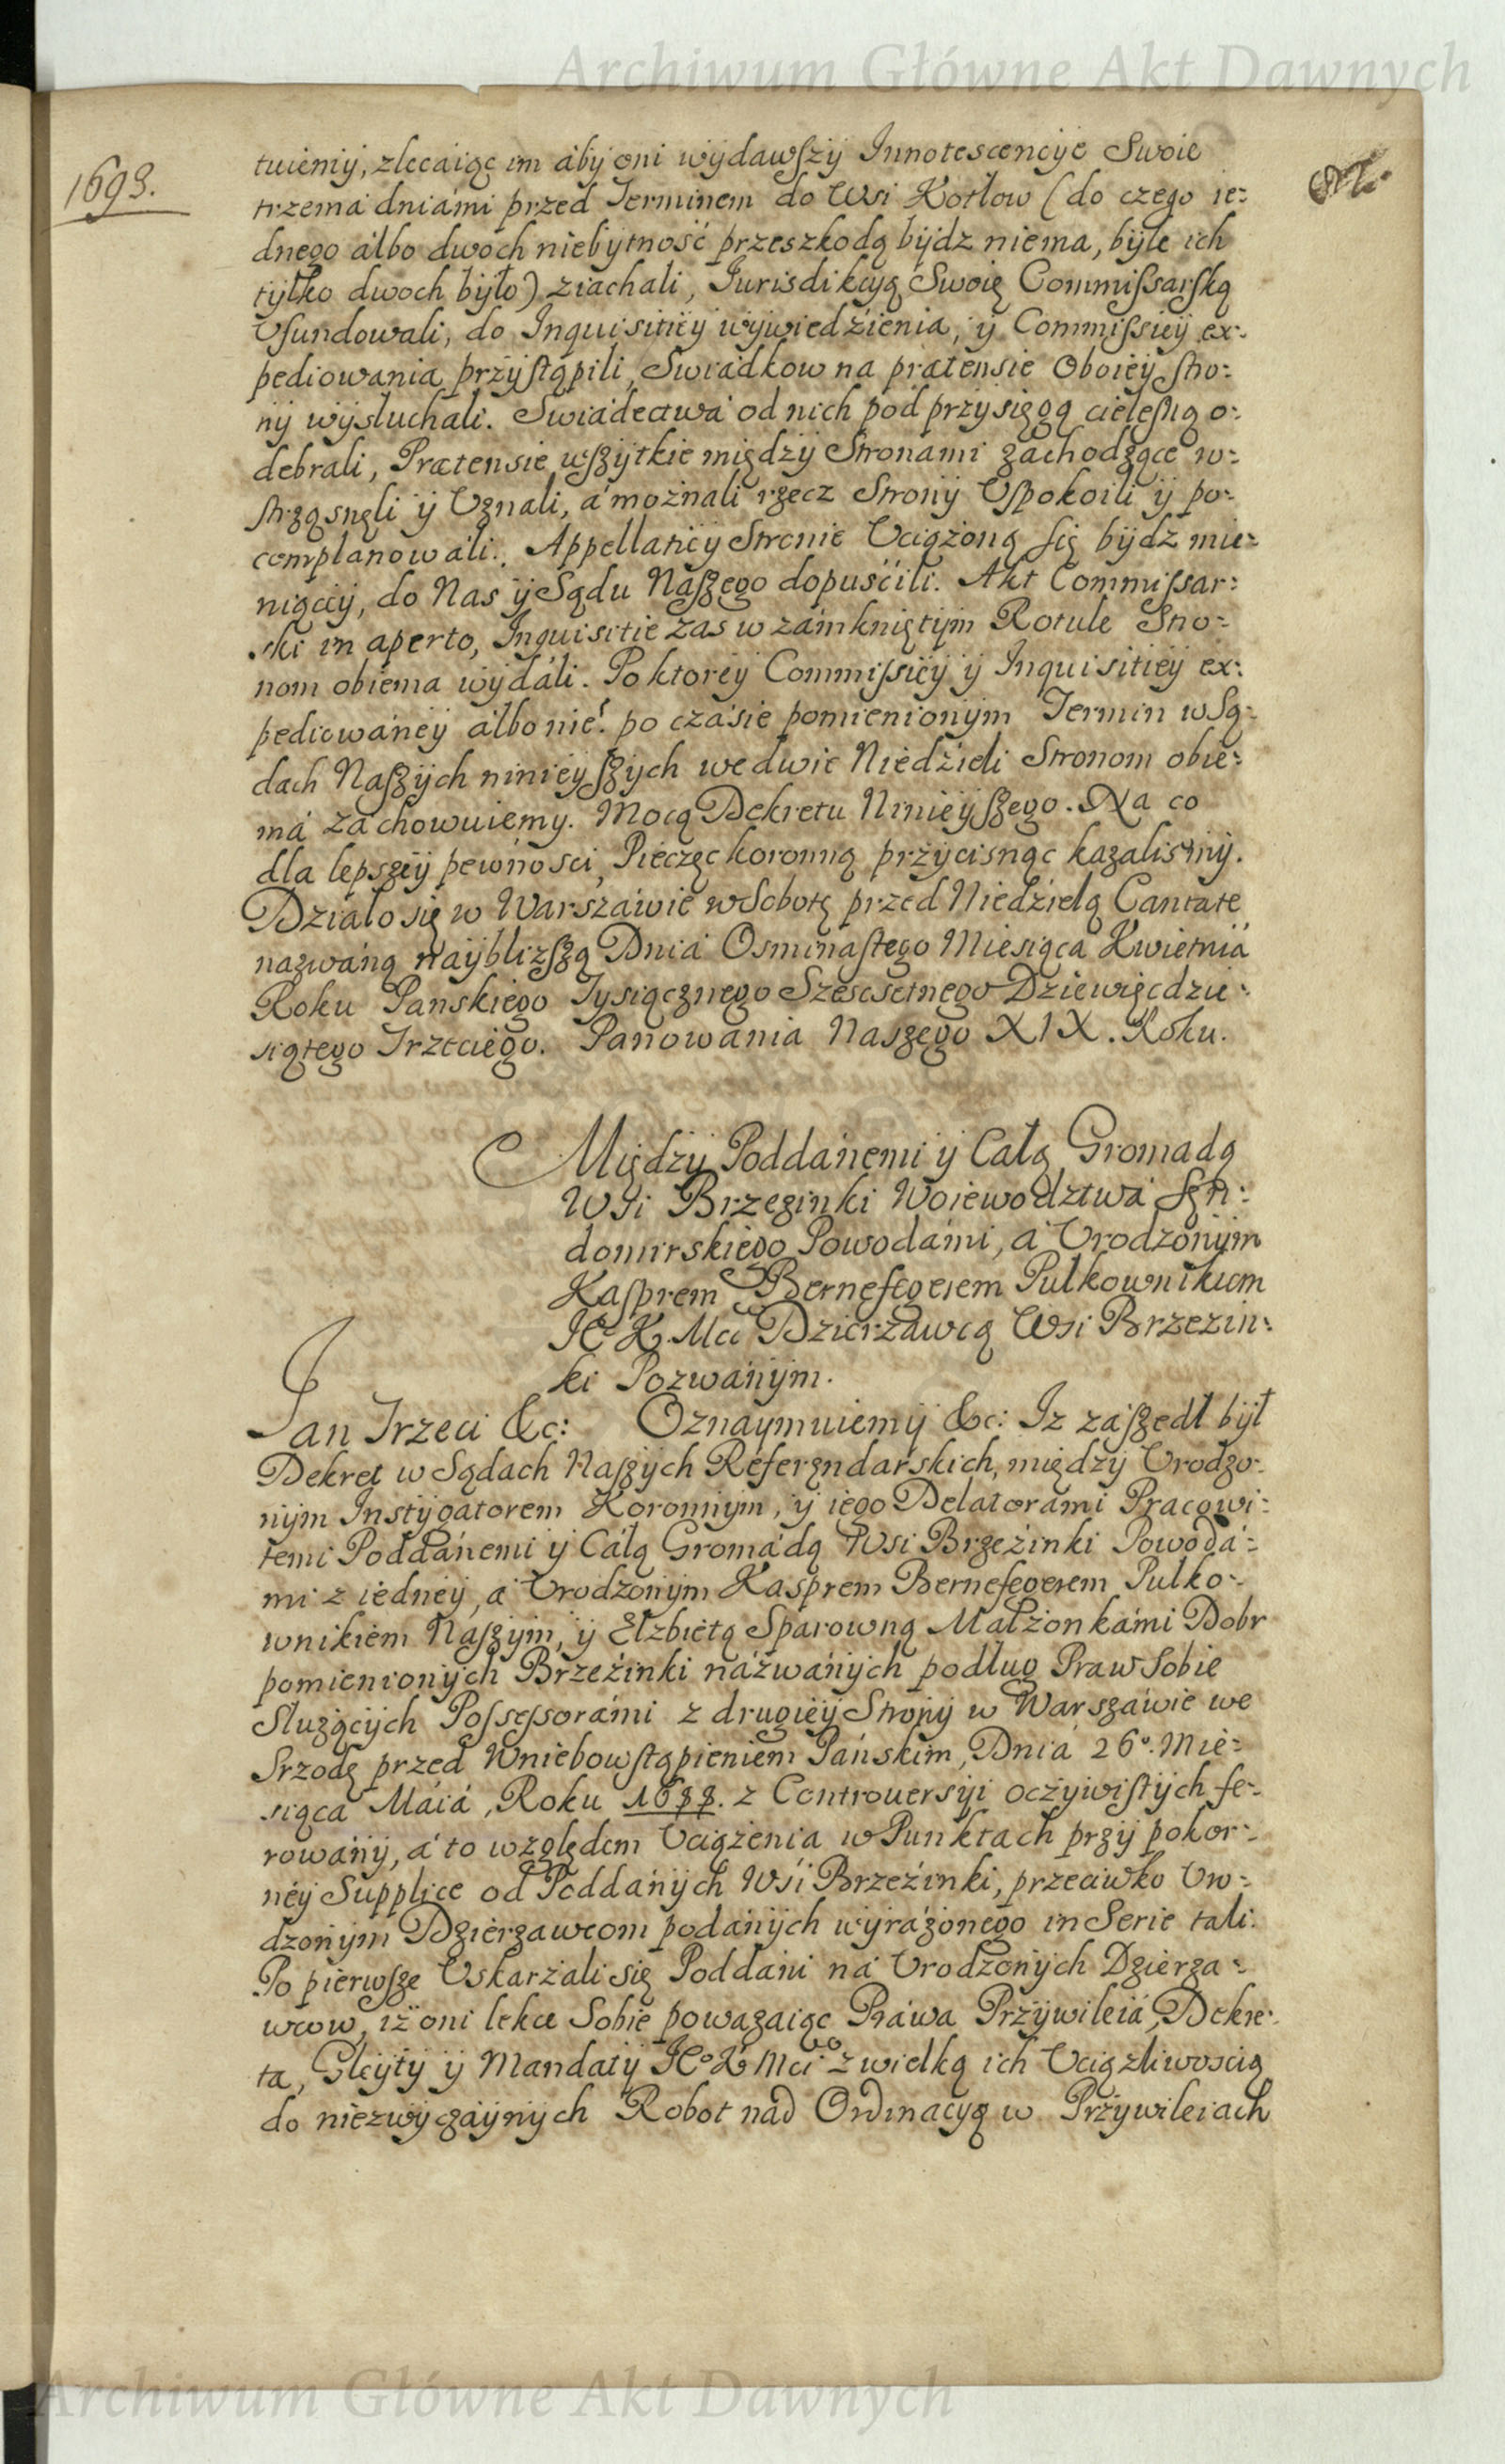 Archiwum Główne Akt Dawnych
1693.
tuieniy, zlecaiąc im aby oni wydawszy Innotescencye Swoie
trzema dniami przed Terminem do Wsi Kotłow (do czego ie-
dnego albo dwoch niebytność przeszkodą bydz niema, byle ich
tylko dwoch było) ziachali, Jurisdikcyą Swoię Commissarską
Ufundowali, do Inquisitiey wywiedzienia, y Commissiey ex-
pediowania przystąpili, Swiadkow na prætensie Oboiey stro-
ny wysłuchali. Swiadectwa od nich pod przysięgą cielesną o-
debrali, Prætensie wszytkie między Stronami zachodzące w-
strząsnęli y Uznali, a możnali rzecz Strony Uspokoili y po-
complanowali. Appellatiey Stronie Uciążoną się bydz mie-
niącey, do Nas y Sądu Naszego dopuścili. Akt Commissar-
ski in aperto, Inquisitie zas w zamkniętym Rotule Stro-
nom obiema wydali. Po ktorey Commissiey y Inquisitiey ex-
pediowaney albo nie? po czasie pomienionym Termin w Są-
dach Naszych ninieyszych we dwie Niedzieli Stronom obie-
ma zachowuiemy. Mocą Dekretu Ninieyszego. Na co
dla lepszey pewności, Pieczęc koronną przycisnąc kazalismy.
Działo się w Warszawie w Sobotę przed Niedzielą Cantate
nazwaną naybliższą Dnia Osmnastego Miesiąca Kwietnia
Roku Panskiego Tysiącznego Szescsetnego Dziewięcdzie-
siątego Trzeciego. Panowania Naszego XIX. Roku.
Między Poddanemi y Całą Gromadą
Wsi Brzezinki Woiewodztwa Sęn-
domirskiego Powodami, a Urodzonym
Kasprem Bernefegerem Pułkownikiem
JEo K. Mci Dzierzawcą Wsi Brzezin-
ki Pozwanym.
Jan Trzeci &c: Oznaymuiemy &c: Iz zaszedł był
Dekret w Sądach Naszych Referęndarskich, między Urodzo-
nym Instygatorem Koronnym, y iego Delatorami Pracowi-
temi Poddanemi y Całą Gromadą Wsi Brzeżinki Powoda-
mi z iedney, a Urodzonym Kasprem Bernefegerem Pułko-
wnikiem Naszym, y Elzbietą Sparowną Małżonkami Dobr
pomienionych Brzeżinki názwanych podług Praw Sobie
Służących Possessorami z drugiey Strony w Warszawie we
Srzodę przed Wniebowstąpieniem Pańskim, Dnia 26o. Mie-
siąca Maia, Roku 1688. z Controuersyi oczywistych fe-
rowany, a to względem Uciążenia w Punktach przy pokor-
ney Supplice od Poddanych Wsi Brzeżinki, przeciwko Uro-
dzonym Dzierzawcom podanych wyrażonego in Serie tali.
Po pierwsze Uskarżali się Poddani na Urodzonych Dzierza-
wcow, iż oni lekce Sobie poważaiąc Prawa Przywileia, Dekre-
ta, Gleyty y Mandaty JEo K Mci z wielką ich Uciążliwoscią
do niezwyczaynych Robot nad Ordinacyą w Przywileiach
Archiwum Główne Akt Dawnych